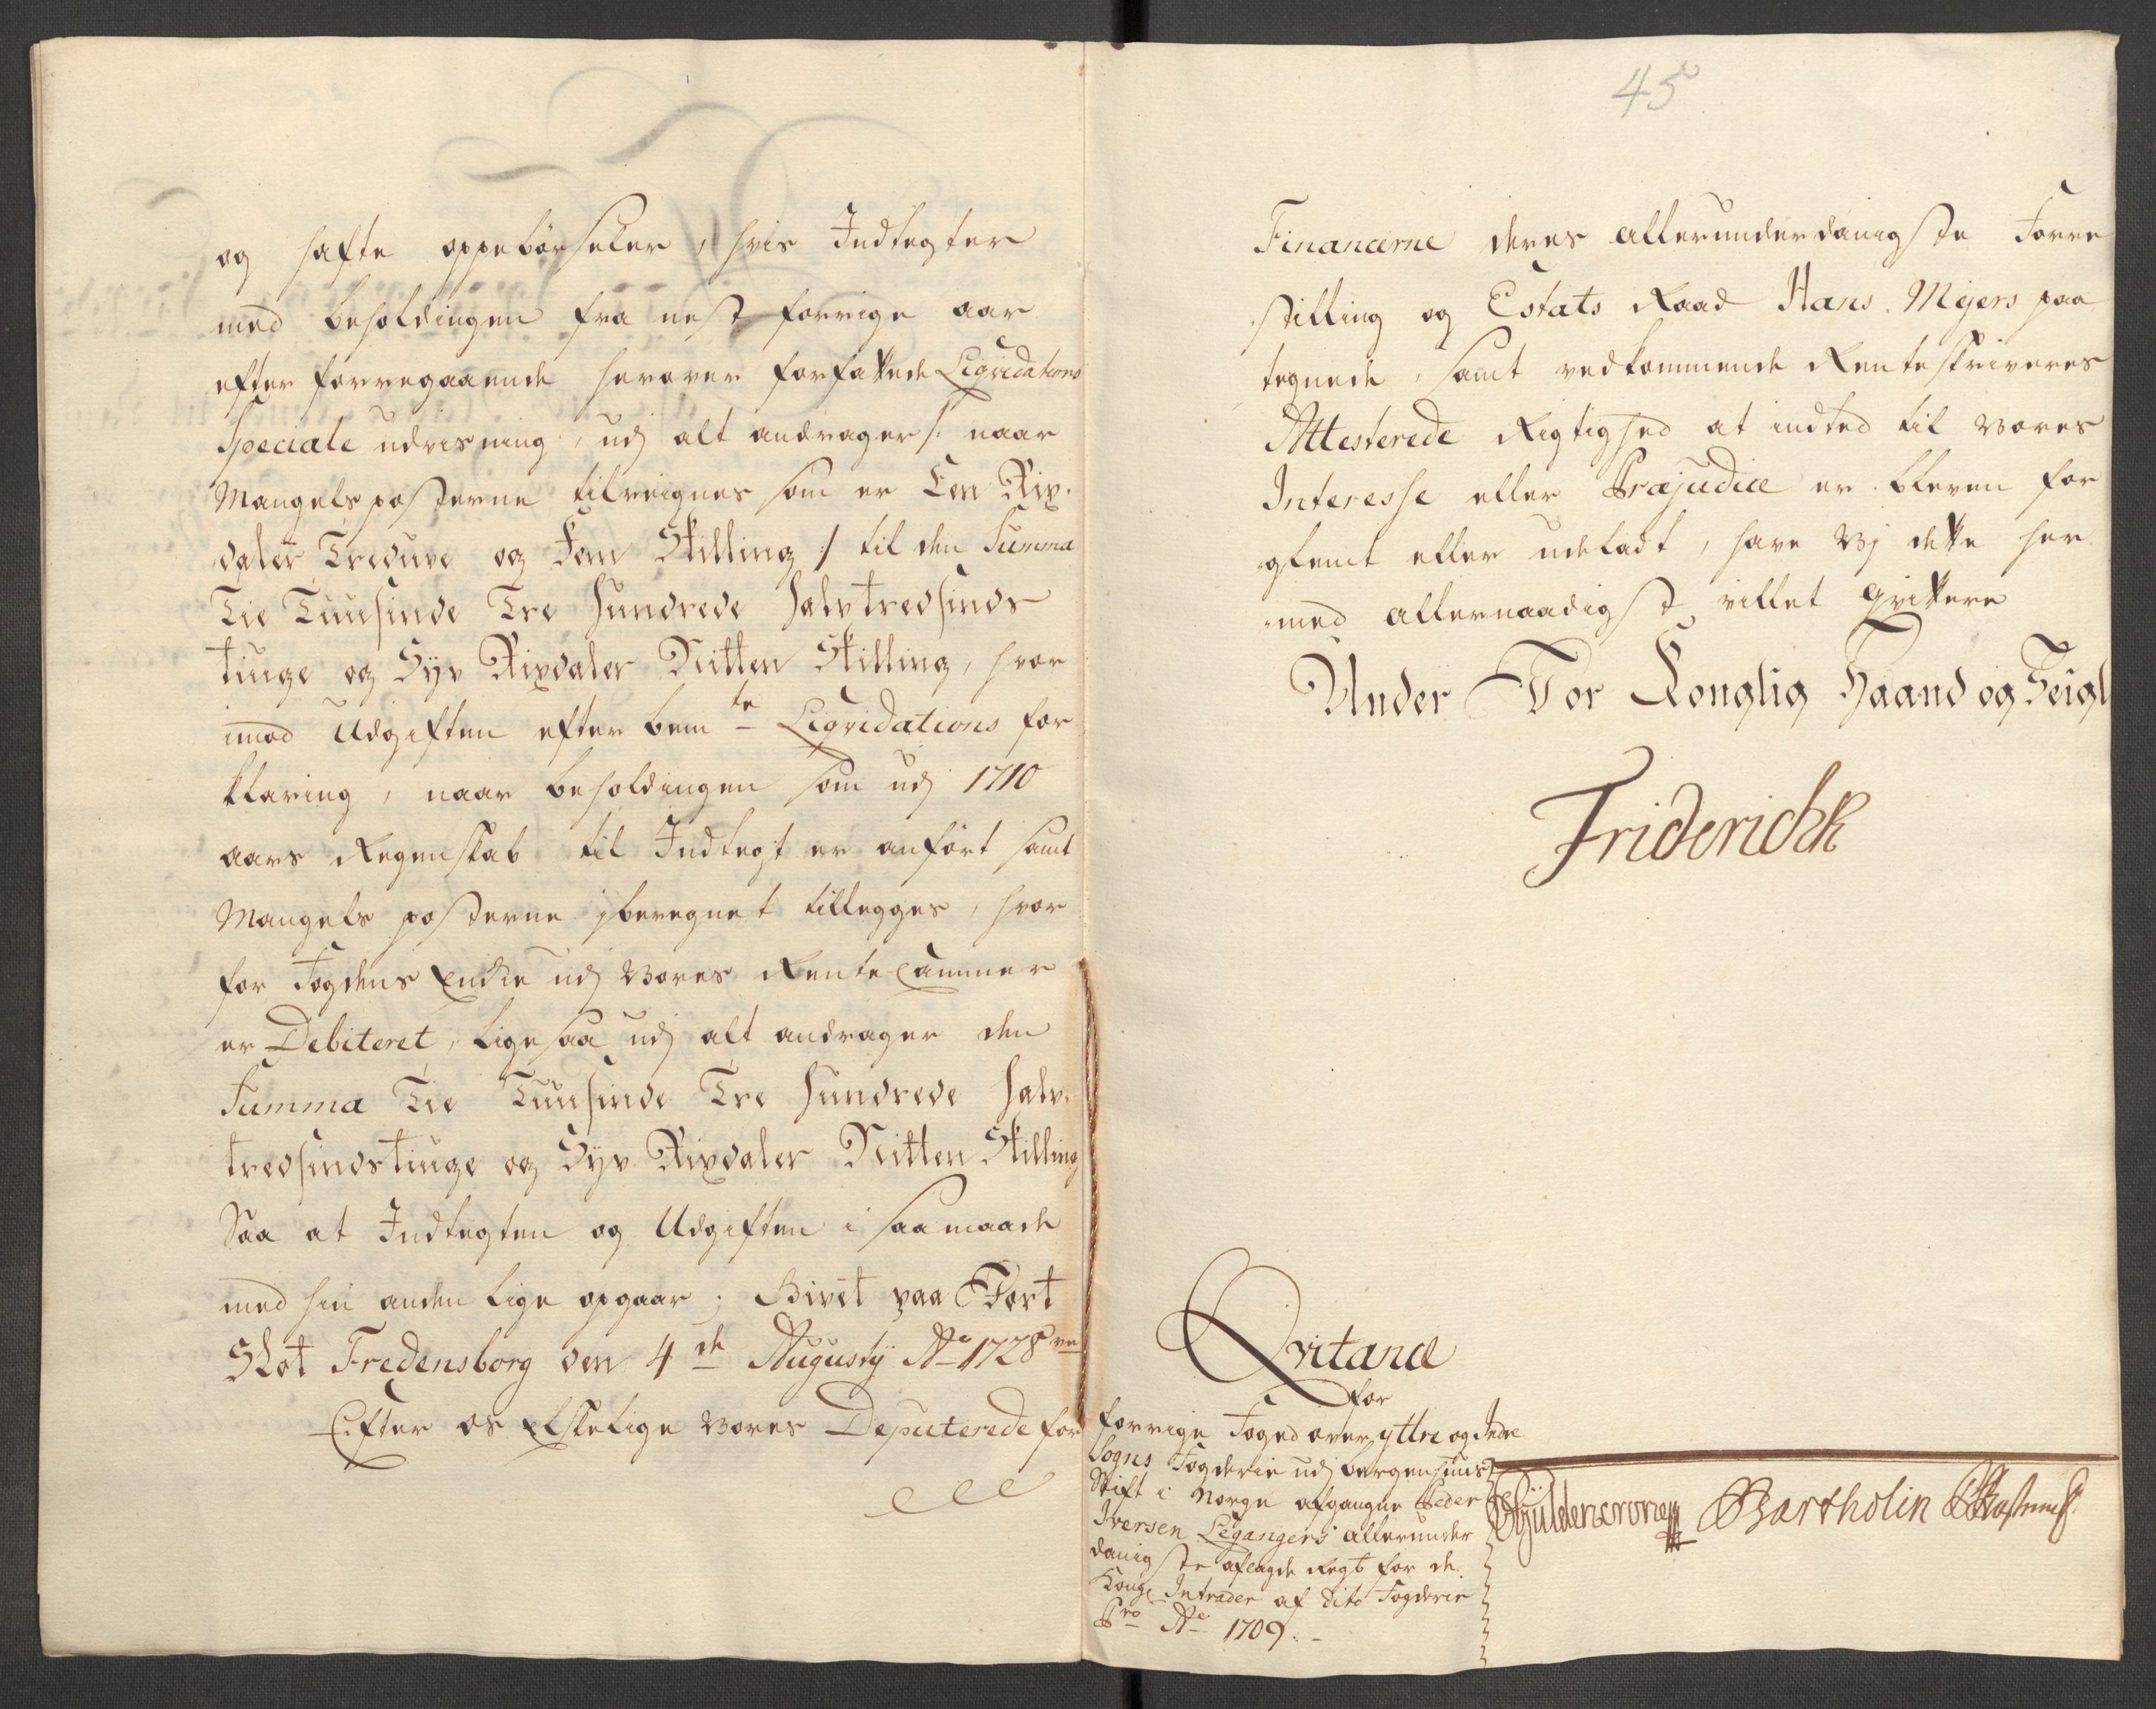 og hafte oppebörseler, hvis Indtegter
med beholdingen fra nest forrige aar
efter forregaaende herover forfattede Liqvidations
Speciale udvisning, udj alt andrager /: naar
Mangels posterne tilreignes som er Een Rix-
daler Tredüve og Fem Skilling :/ til den Summa
Tie Tuusinde Tre Hundrede Halvtredsinds
tiuge og Syv Rixdaler Nitten Skilling, hvor
imod Udgiften efter bemte Liqvidations for
klaring, naar beholdingen som udj 1710
aars Regenskab til Indtegt er anfört samt
Mangels posterne jberegnet tillegges, hvor
for Fogdens Enckie udj Vores Rente Cammer
er Debiteret, ligesaa udj alt andrager den
Summa Tie Tuusinde Tre Hundrede Halv-
tredsindstiuge og Syv Rixdaler Nitten Skilling
Saa at Indtegten og Udgiften i saa maade
med hin anden lige opgaar; Givet paa Vort
Slot Fredensborg den 4de Augusty Ao 1728
Efter os Elskelige Vores Deputerede for
45
Financerne deres allerunderdanigste Forre
stilling og Estats Raad Hans Mejers paa
tegnede, samt vedkommende Renteskriveres
Attesterede Rigtighed at indted til Vores
Interesse eller Præjudice er bleven for
glemt eller udeladt, have Vj dette her
med allernaadigst villet qvittere
Under Vor Konglig Haand og Seigl
Friderich R
Qvitance
for
forrige Foged over yttre og Indre
Sogns Fogderie udj Bergenhuus
Stift i Norge afgangne Peder
Iversen Legangers allerunder
danigste aflagde Regb for de
Kongl Intrader af dito Fogderie
Pro Ao 1709.
Gÿldencrone Bartholin